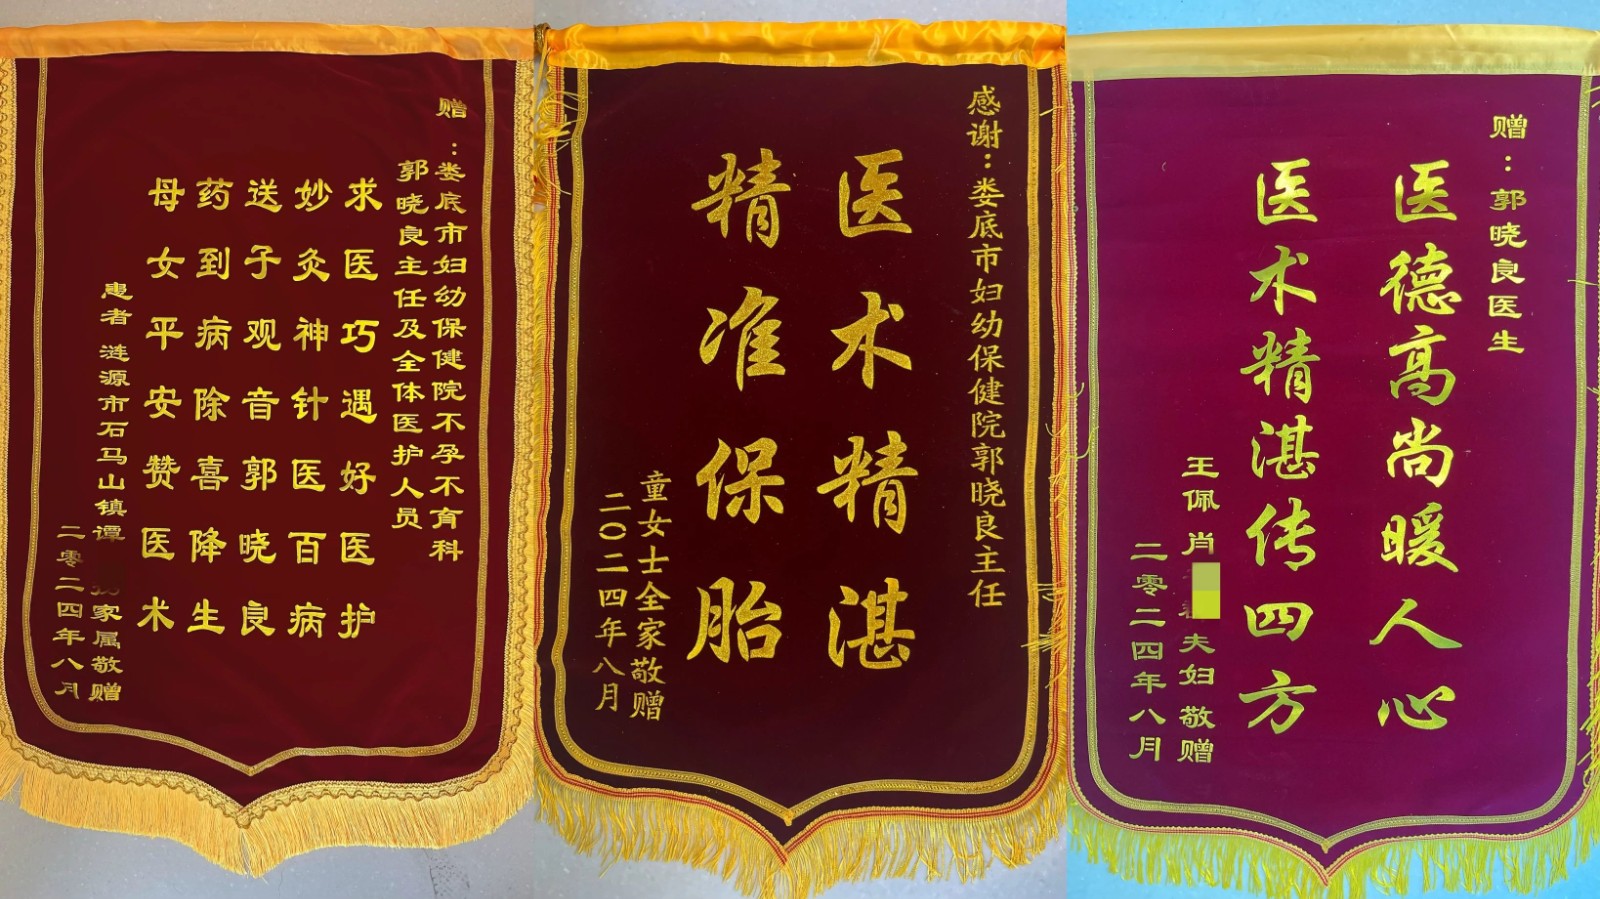 赠：娄底市妇幼保健院不孕不育科
郭晓良主任及全体医护人员
求医巧遇好医护
妙灸神针医百病
送子观音郭晓良
药到病除喜降生
母女平安赞医术
患者 涟源市石马山镇谭 家属敬赠
二零二四年八月
感谢：娄底市妇幼保健院郭晓良主任
医术精湛
精准保胎
童女士全家敬赠
二〇二四年八月
赠：郭晓良医生
医德高尚暖人心
医术精湛传四方
王佩 肖 夫妇敬赠
二零二四年八月